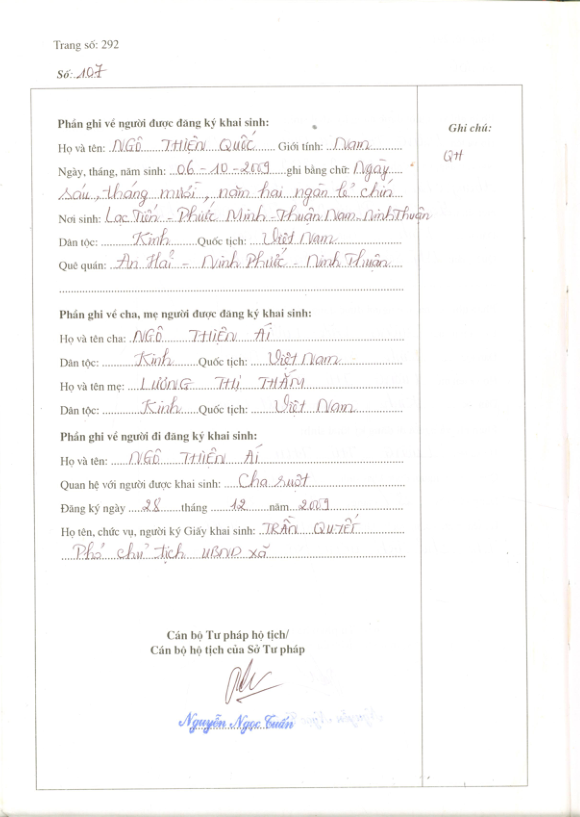 Trang số: 292
Số: 107
Phần ghi về người được đăng ký khai sinh:
Họ và tên: NGÔ THIỆN QUỐC Giới tính: Nam
Ngày, tháng, năm sinh: 06-10-2009 ghi bằng chữ: Ngày
sáu, tháng mười, năm hai ngàn lẻ chín
Nơi sinh: Lạc Tiến - Phước Minh - Thuận Nam - Ninh Thuận
Dân tộc: Kinh Quốc tịch: Việt Nam
Quê quán: An Hải - Ninh Phước - Ninh Thuận
Phần ghi về cha, mẹ người được đăng ký khai sinh:
Họ và tên cha: NGÔ THIỆN ÁI
Dân tộc: Kinh Quốc tịch: Việt Nam
Họ và tên mẹ: LƯƠNG THỊ THẮM
Dân tộc: Kinh Quốc tịch: Việt Nam
Phần ghi về người đi đăng ký khai sinh:
Họ và tên: NGÔ THIỆN ÁI
Quan hệ với người được khai sinh: Cha ruột
Đăng ký ngày 28 tháng 12 năm 2009
Họ tên, chức vụ, người ký Giấy khai sinh: TRẦN QUYẾT
Phó chủ tịch UBND xã
Cán bộ Tư pháp hộ tịch/
Cán bộ hộ tịch của Sở Tư pháp
Nguyễn Ngọc Tuấn
Ghi chú:
QH